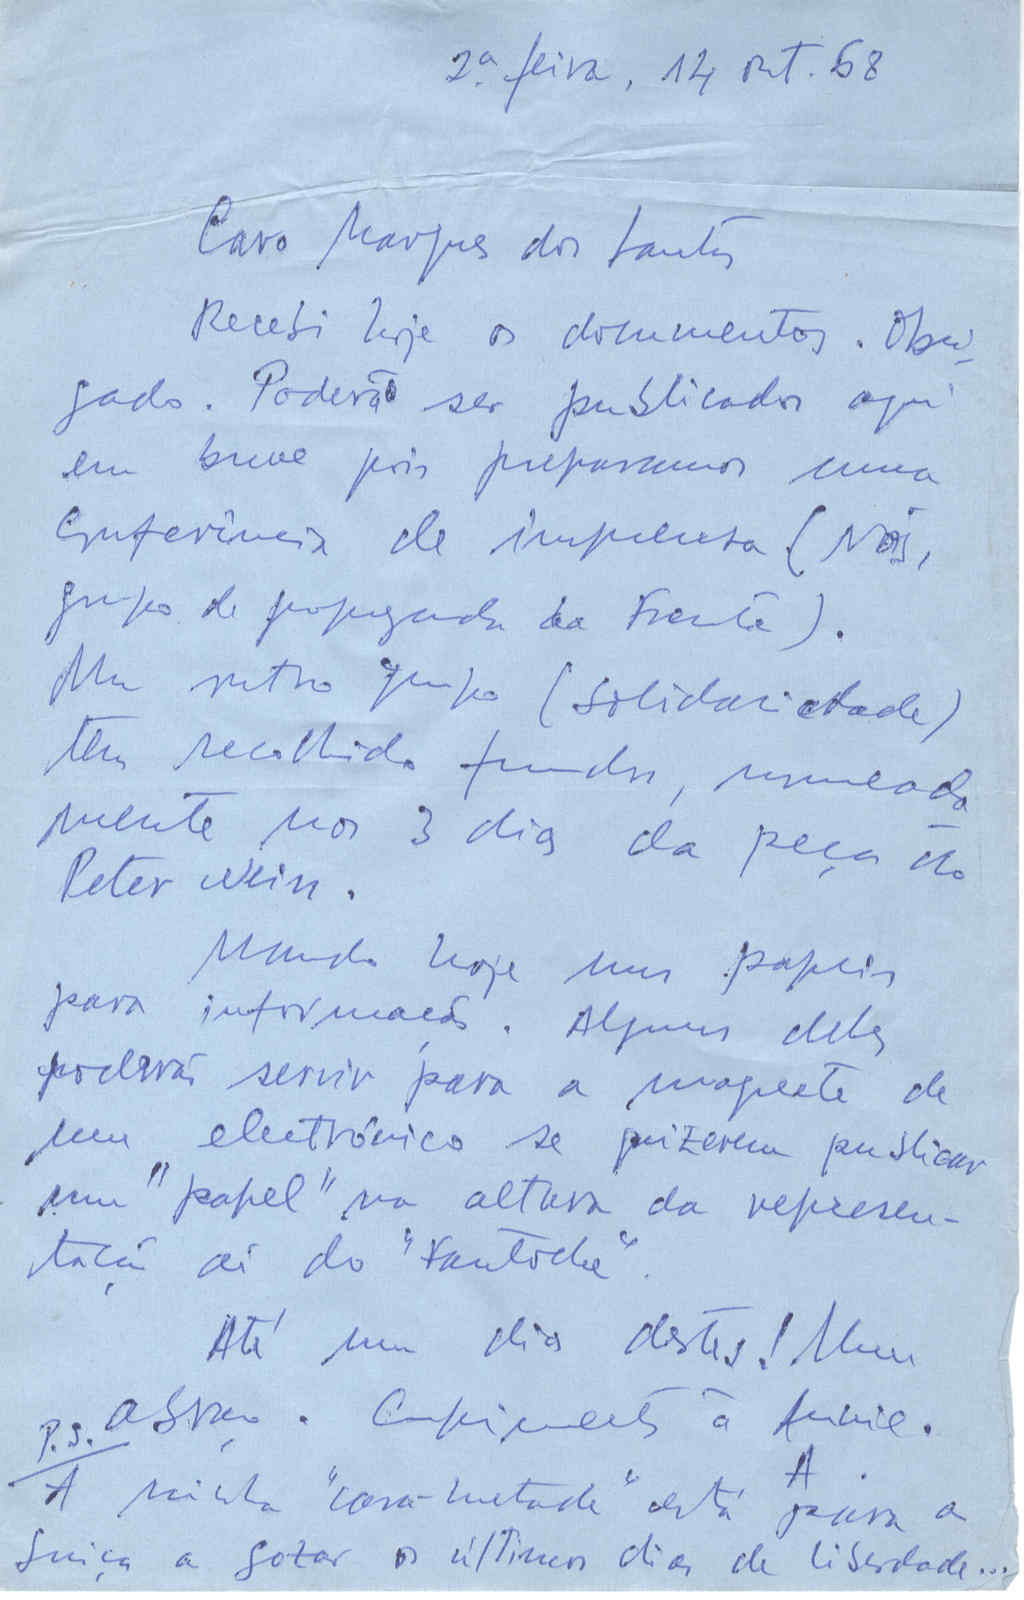 2ª feira, 14 out. 68
Caro Marques dos Santos
Recebi hoje os documentos. Obri-
gado. Poderão ser publicados aqui
em breve pois preparamos uma
Conferência de imprensa (Nós,
grupo de propaganda da Frente).
Um outro grupo (Solidariedade)
tem recolhido fundos, nomeada
mente nos 3 dias da peça do
Peter Weiss.
Mando hoje uns papeis
para informação. Alguns deles
poderão servir para a maquete de
um electrónico se quizerem publicar
um "papel" na altura da represen-
tação aí do "Fantoche".
Até um dia destes! Um
abraço. Cumprimentos à Annie.
A.
P.S.
A minha "cara-metade" está para a
Suiça a gozar os últimos dias de liberdade...